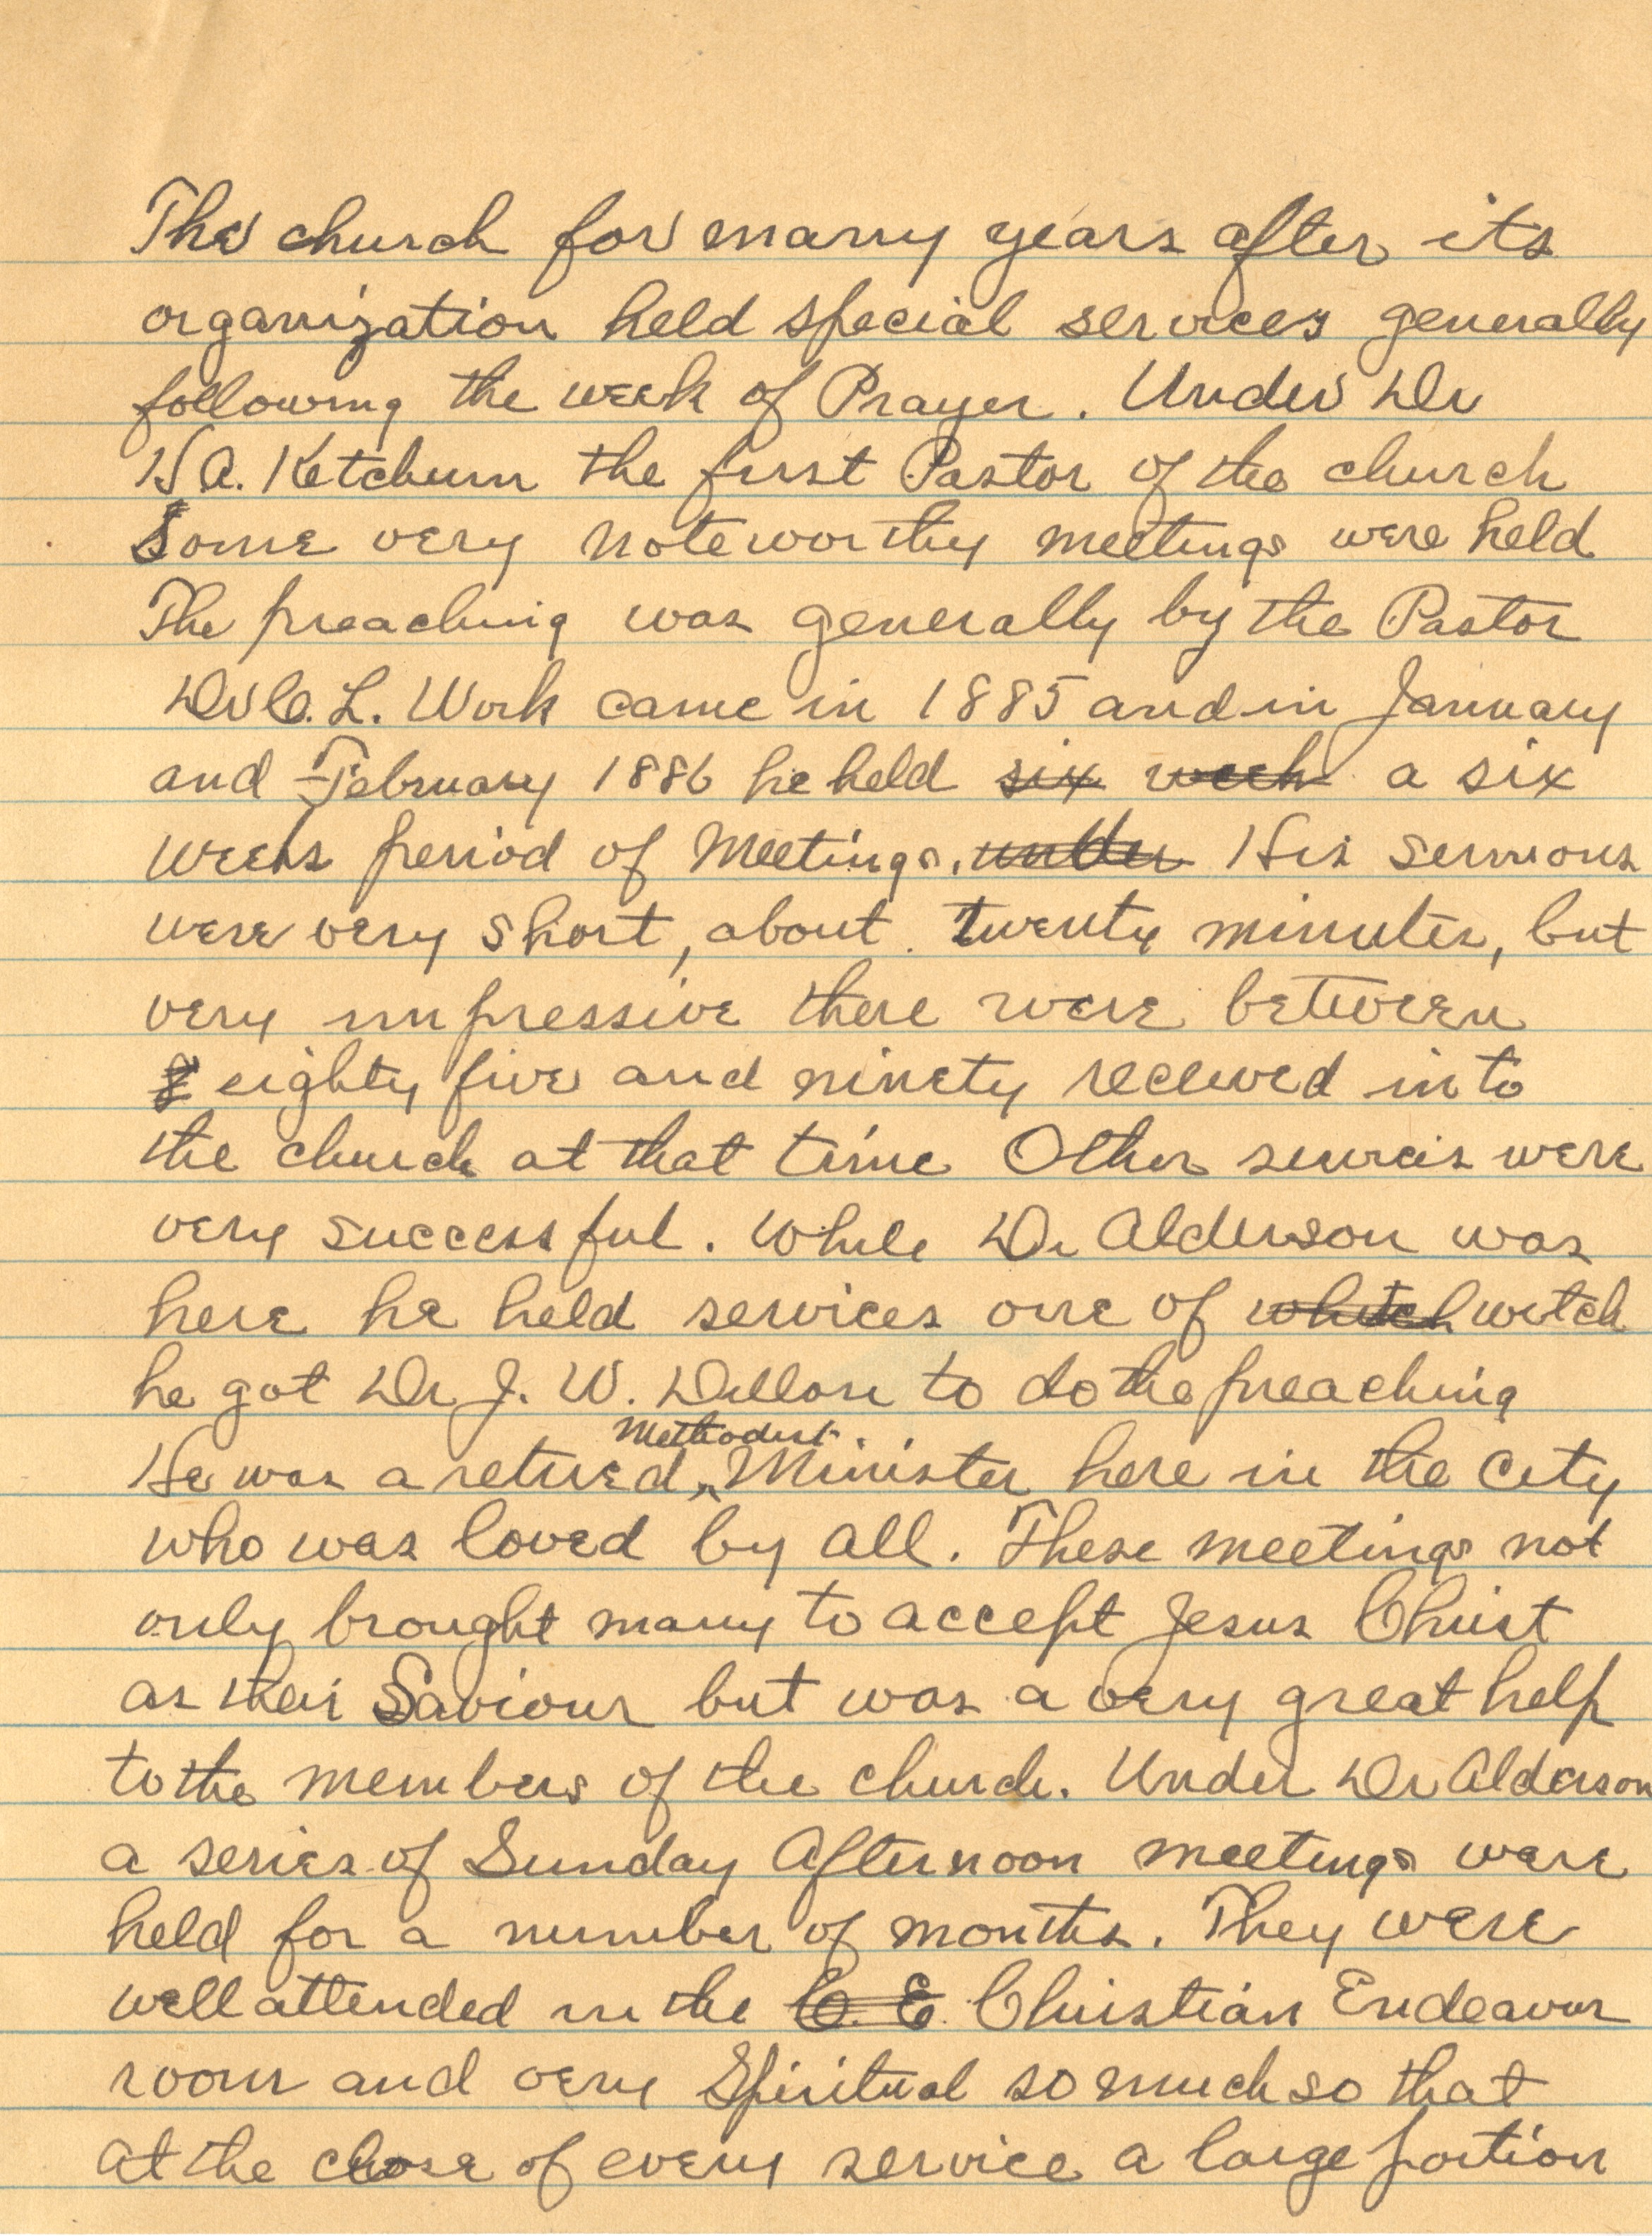 The church for many years after its
organization held special services generally
following the week of Prayer. Under Dr
H A. Ketchum the first Pastor of the church
Some very noteworthy meetings were held
The preaching was generally by the Pastor
Dr C. L. Work came in 1885 and in January
and February 1886 he held six week a six
weeks period of Meetings. under His sermons
were very short, about twenty minutes, but
very impressive there were between
eighty five and ninety received into
the church at that time Other services were
very successful. While Dr Alderson was
here he held services one of which witch
he got Dr J. W. Dillon to do the preaching
He was a retired Methodist Minister here in the City
who was loved by all. These meetings not
only brought many to accept Jesus Christ
as their Saviour but was a very great help
to the members of the church. Under Dr Alderson
a series of Sunday Afternoon meetings were
held for a number of months. They were
well attended in the C. E. Christian Endeavor
room and very Spiritual so much so that
at the close of every service a large portion